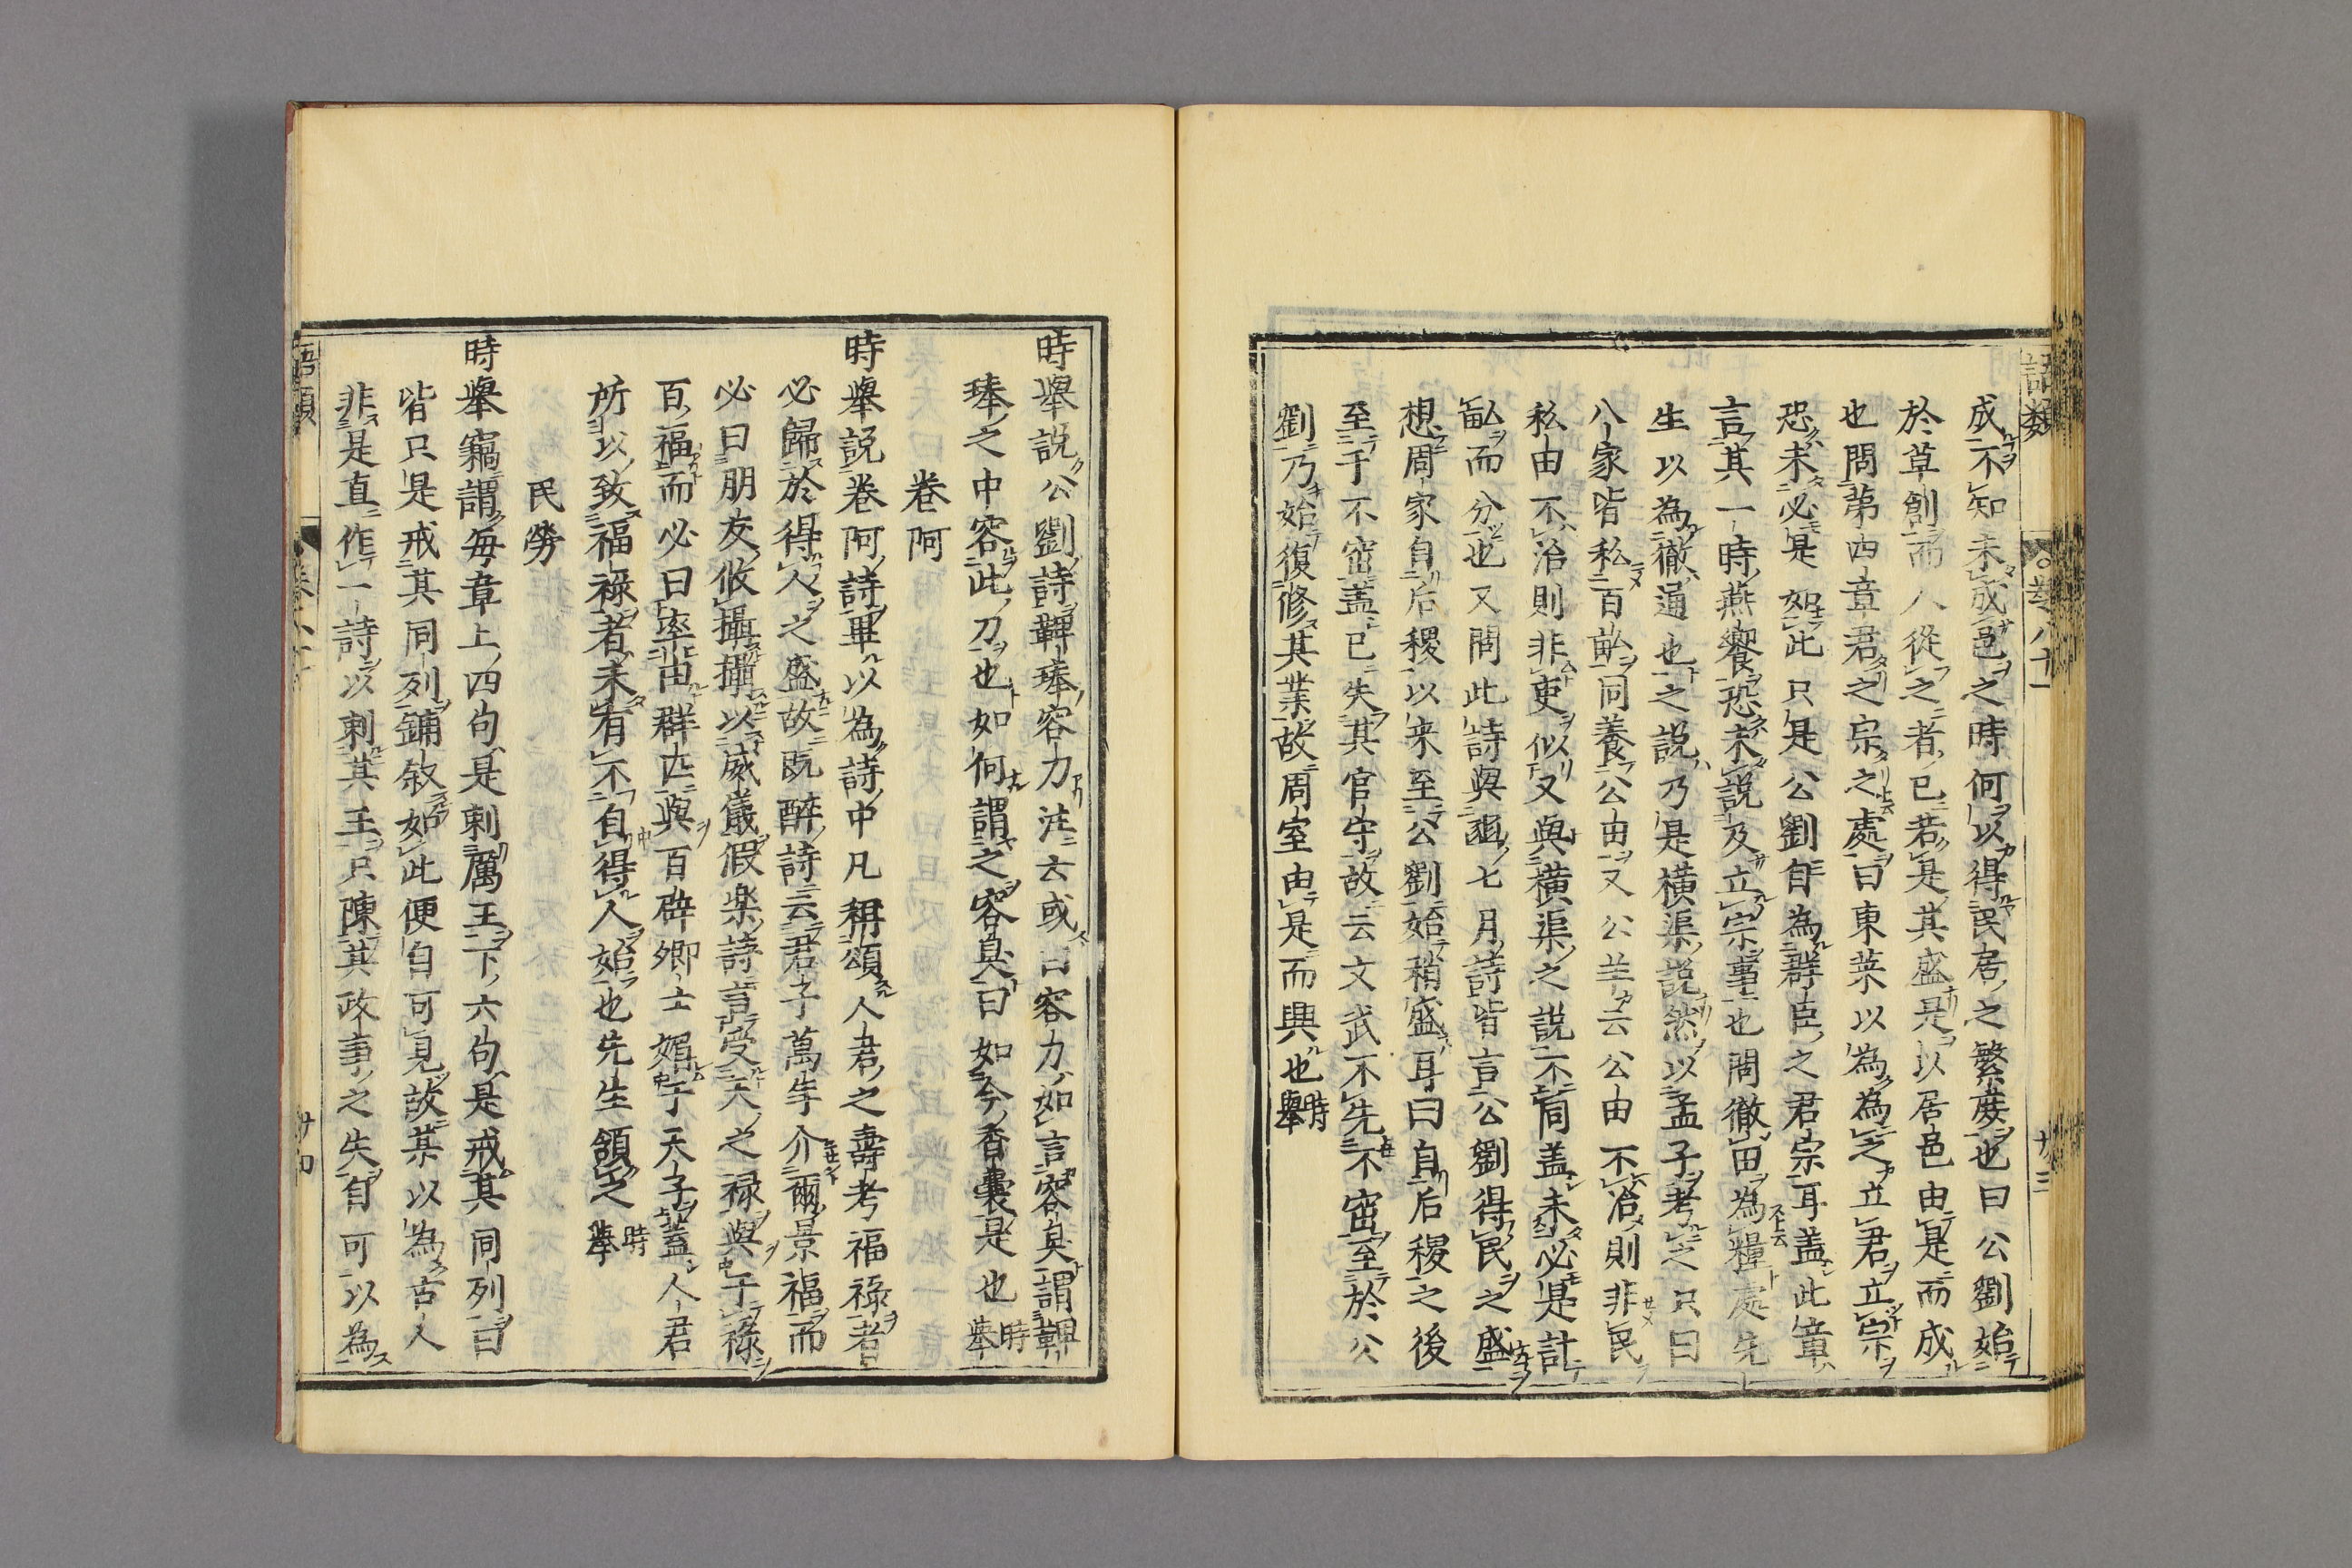 語類
卷八十一
廿三
成不知未成邑之時何以得民居之繁庶也曰公劉始
於草創而人從之者已若是其盛是以居邑由是而成
也問第四章君之宗之處曰東莱以為為之立君立宗
恐未必是如此只是公劉自為群臣之君宗耳盖此章
言其一時燕饗恐未說及立宗事也問徹田為糧處先
生以為徹通也之說乃是橫渠說然以孟子考之只曰
八家皆私百畝同養公由又公羊云公由不治則非民
私由不治則非吏似又與橫渠之說不同盖未必是計
畝而分也又問此詩與豳七月詩皆言公劉得民之盛
想周家自后稷以来至公劉始稍盛耳曰自后稷之後
至于不窋盖已失其官守故云文武不先不窋至於公
劉乃始復修其業故周室由是而興也時舉
時舉說公劉詩鞞琫容刀注云或曰容刀如言容臭謂鞞
琫之中容此刀也如何謂之容臭曰如今香囊是也時舉
卷阿
時舉説卷阿詩畢以為詩中凡稱頌人君之壽考福祿者
必歸於得人之盛故既醉詩云君子萬年介爾景福而
必曰朋友攸攝攝以威儀假楽詩言受天之禄與千禄
百福而必曰率由群匹與百辟卿士媚于天子蓋人君
所以致福祿者未有不自得人始也先生頷之時舉
民勞
時舉竊謂每章上四句是刺厲王下六句是戒其同列曰
皆只是戒其同列鋪敘如此便自可見故某以為古人
非是直作一詩以刺其王只陳其政事之失自可以為
語類
廿四